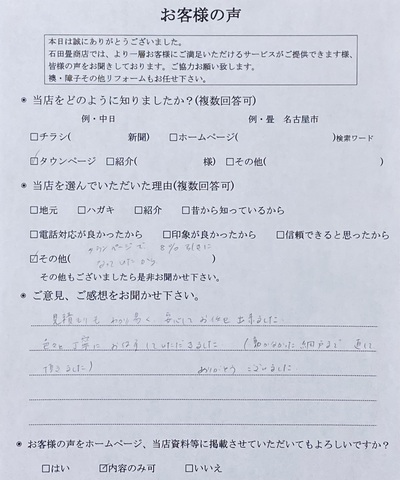 お客様の声
本日は誠にありがとうございました。
石田畳商店では、より一層お客様にご満足いただけるサービスがご提供できます様、
皆様の声をお聞きしております。ご協力お願い致します。
襖・障子その他リフォームもお任せ下さい。
◉ 当店をどのように知りましたか?(複数回答可)
例・中日 例・畳 名古屋市
□チラシ( 新聞) □ホームページ( )検索ワード
☑タウンページ □紹介( 様) □その他( )
◉ 当店を選んでいただいた理由(複数回答可)
□地元 □ハガキ □紹介 □昔から知っているから
□電話対応が良かったから □印象が良かったから □信頼できると思ったから
タウンページで 8%引きに
なっていたから
☑その他( )
その他もございましたら是非お聞かせ下さい。
◉ ご意見、ご感想をお聞かせ下さい。
見積もりも わかり易く、安心して お任せ 出来ました
丁寧に していただきました ( 網戸まで 直して
頂きました) ありがとう ございました
◉ お客様の声をホームページ、当店資料等に掲載させていただいてもよろしいですか?
□はい ☑内容のみ可 □いいえ